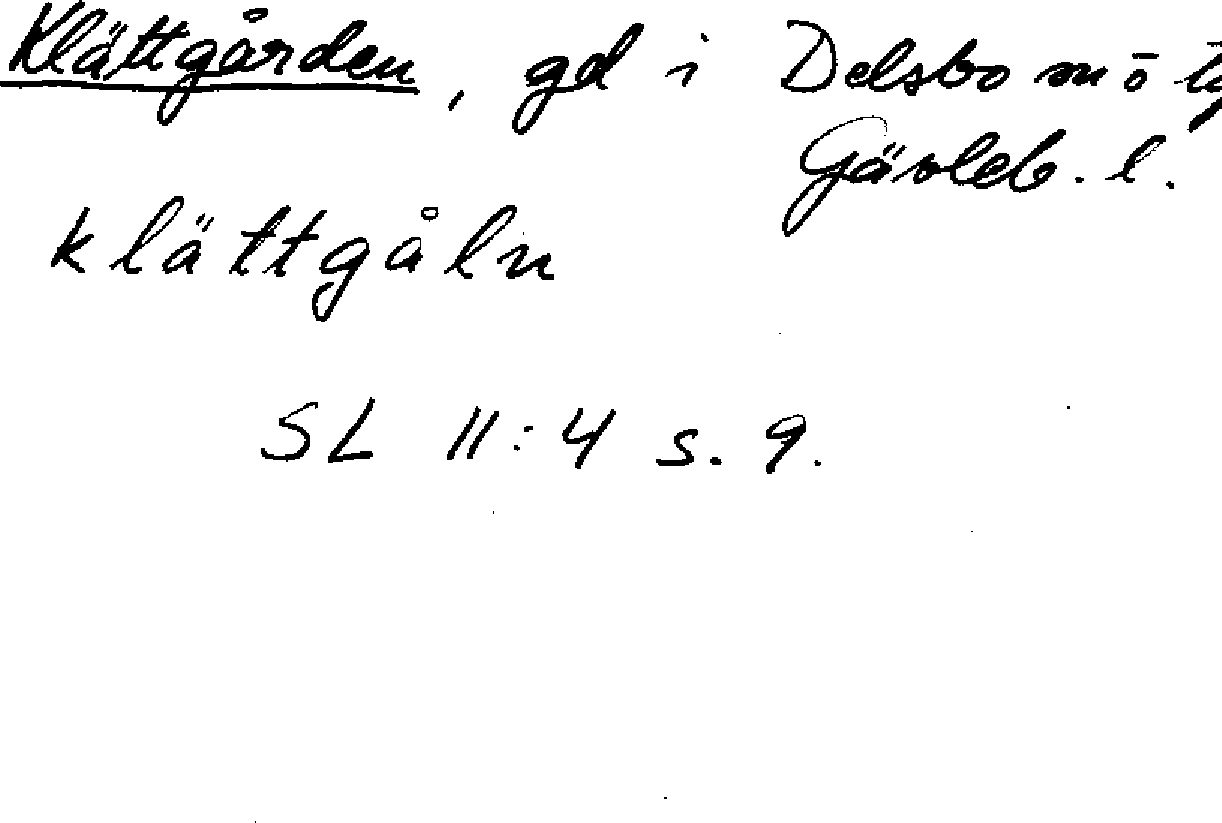 Klättgården, gd i Delsbo sn
Gävleb. l.
klättgåln
SL 11:4 s. 9.